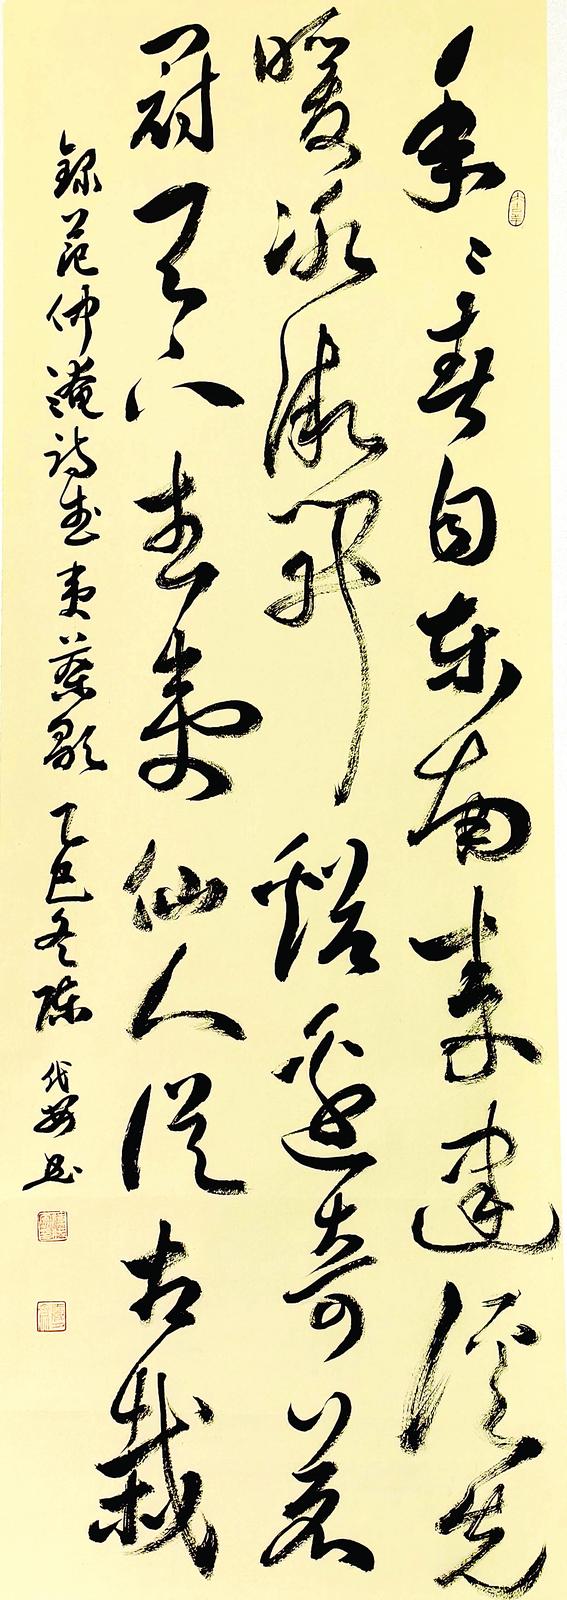 年々春自东南来建溪先
暖冰微开溪边奇茗
冠天下武夷仙人从古栽
录范仲淹诗武夷茶歌 乙巳冬陈